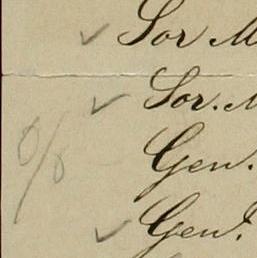 ✓ Sor M
✓ Sor. M
Gen.
✓ Gen.